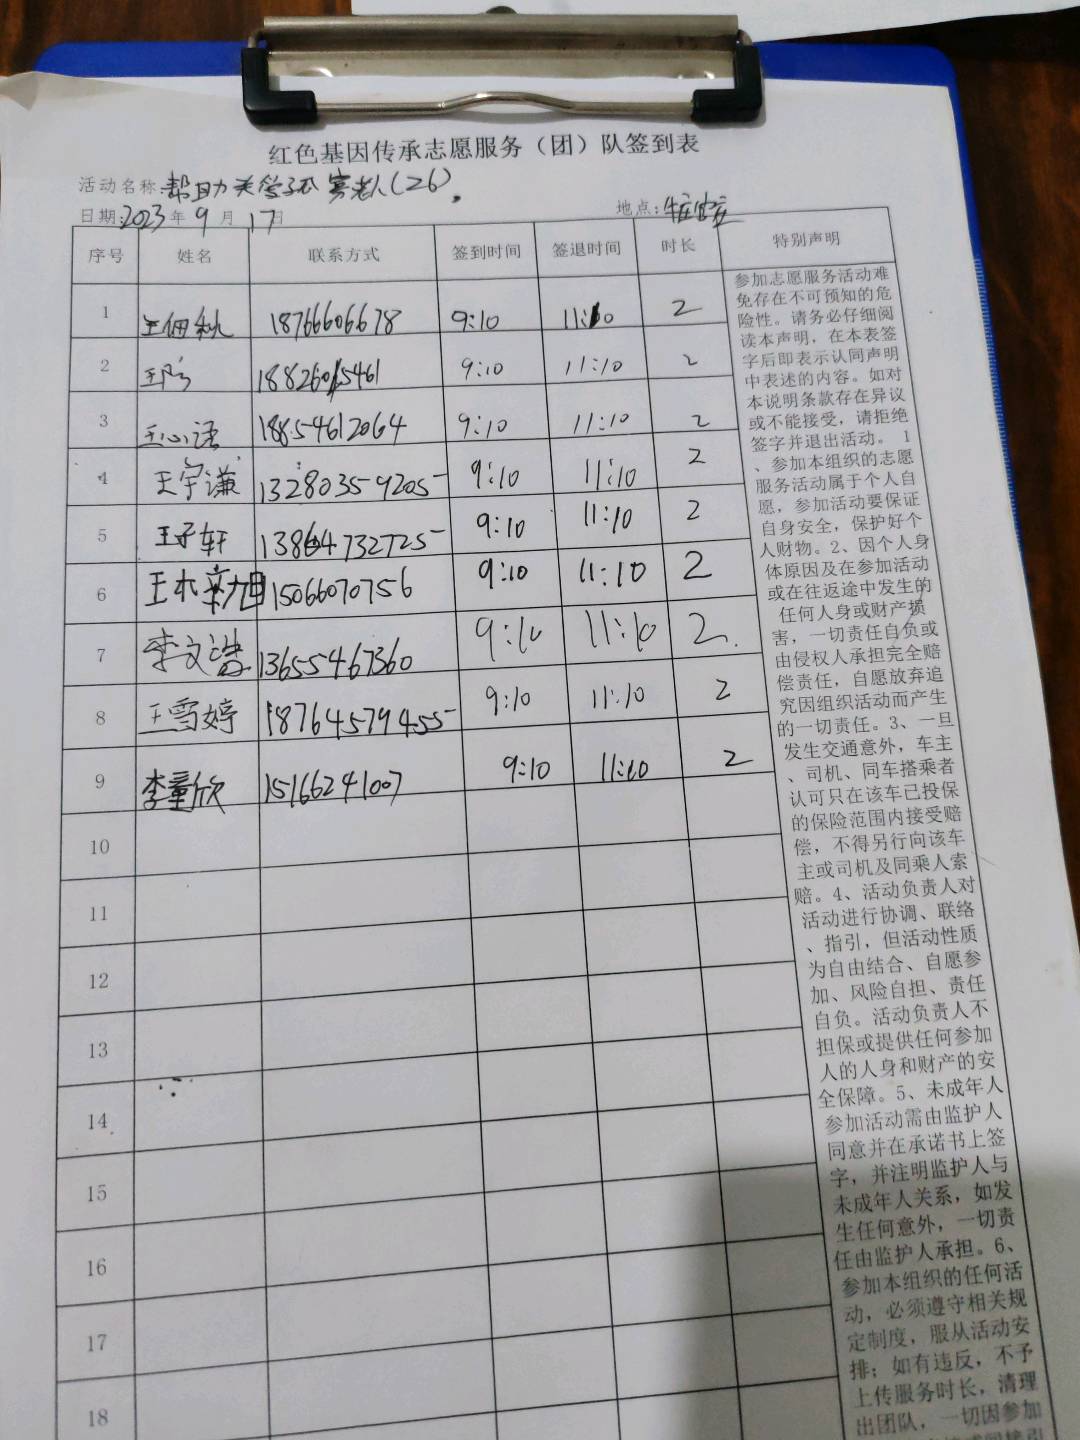 红色基因传承志愿服务（团）队签到表
活动名称:帮助关爱孤寡老人(26).
日期:2023年9月17日 地点:
序号 姓名 联系方式 签到时间 签退时间 时长 特别声明
1 王佃秋 18766606678 9:10 11:10 2
2 18826015461 9:10 11:10 2
3 王心语 18854612064 9:10 11:10 2
4 王宇谦 13280359205 9:10 11:10 2
5 王子轩 13864732725 9:10 11:10 2
6 15066070756 9:10 11:10 2
7 李文浩 13655467360 9:10 11:10 2.
8 王雪婷 18764579455 9:10 11:10 2
9 李童欣 15166241007 9:10 11:10 2
10
11
12
13
14
15
16
17
18
参加志愿服务活动难
免存在不可预知的危
险性。请务必仔细阅
读本声明，在本表签
字后即表示认同声明
中表述的内容。如对
本说明条款存在异议
或不能接受，请拒绝
签字并退出活动。 1
、参加本组织的志愿
服务活动属于个人自
愿，参加活动要保证
自身安全，保护好个
人财物。2、因个人身
体原因及在参加活动
或在往返途中发生的
任何人身或财产损
害，一切责任自负或
由侵权人承担完全赔
偿责任，自愿放弃追
究因组织活动而产生
的一切责任。3、一旦
发生交通意外，车主
、司机、同车搭乘者
认可只在该车已投保
的保险范围内接受赔
偿，不得另行向该车
主或司机及同乘人索
赔。4、活动负责人对
活动进行协调、联络
、指引，但活动性质
为自由结合、自愿参
加、风险自担、责任
自负。活动负责人不
担保或提供任何参加
人的人身和财产的安
全保障。5、未成年人
参加活动需由监护人
同意并在承诺书上签
字，并注明监护人与
未成年人关系，如发
生任何意外，一切责
任由监护人承担。6、
参加本组织的任何活
动，必须遵守相关规
定制度，服从活动安
排；如有违反，不予
上传服务时长，清理
出团队，一切因参加